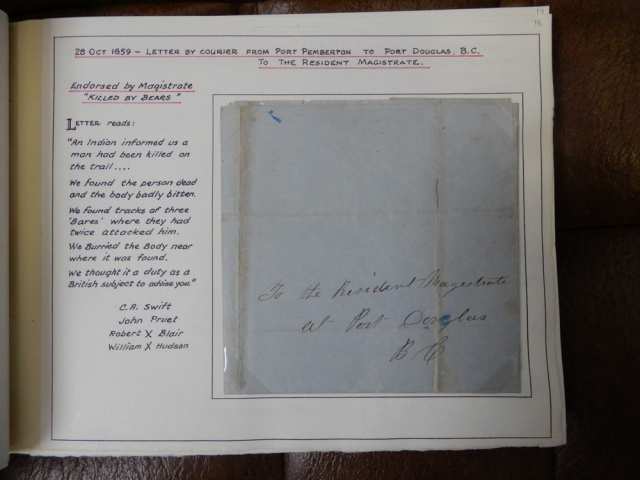 28 OCT 1859 - LETTER BY COURIER FROM PORT PEMBERTON TO PORT DOUGLAS, B.C.
TO THE RESIDENT MAGISTRATE.
Endorsed by Magistrate
"KILLED BY BEARS"
LETTER reads:
"An Indian informed us a
man had been killed on
the trail....
We found the person dead
and the body badly bitten.
We found tracks of three
'Bares' where they had
twice attacked him.
We Burried the Body near
where it was found.
We thought it a duty as a
British subject to advise you."
C.A. Swift
John Pruet
Robert X Blair
William X Hudson
To the Resident Magestrate
at Port Douglas
B C